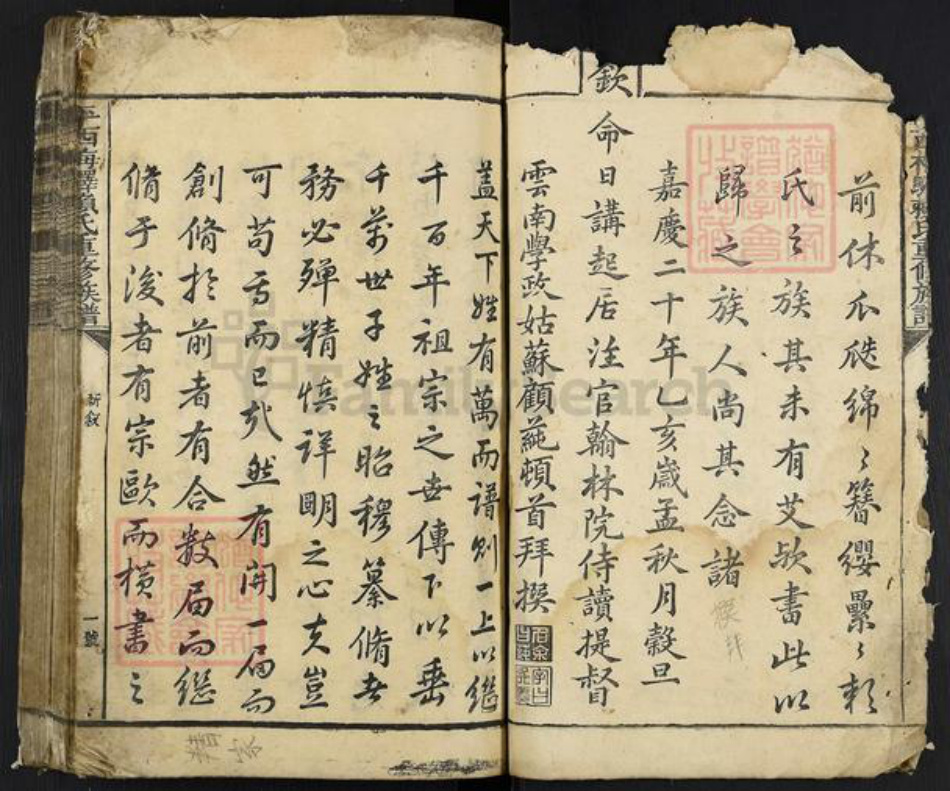 前休瓜瓞綿〻簪纓纍〻賴
氏之族其未有艾歟書此以
歸之族人尚其念諸
嘉慶二十年乙亥歲孟秋月穀旦
欽命日講起居注官翰林院侍讀提督
雲南學政姑蘇顧蒓頓首拜撰
蓋天下姓有萬而譜則一上以繼
千百年祖宗之世傳下以垂
千萬世子姓之昭穆纂脩者
務必殫精慎詳明之心夫豈
可苟焉而已哉然有開一局而
創脩於前者有合數局而繼
脩于後者有宗歐而橫書之
西梅驛賴氏重修族譜
新敘
一號
FamilySearch